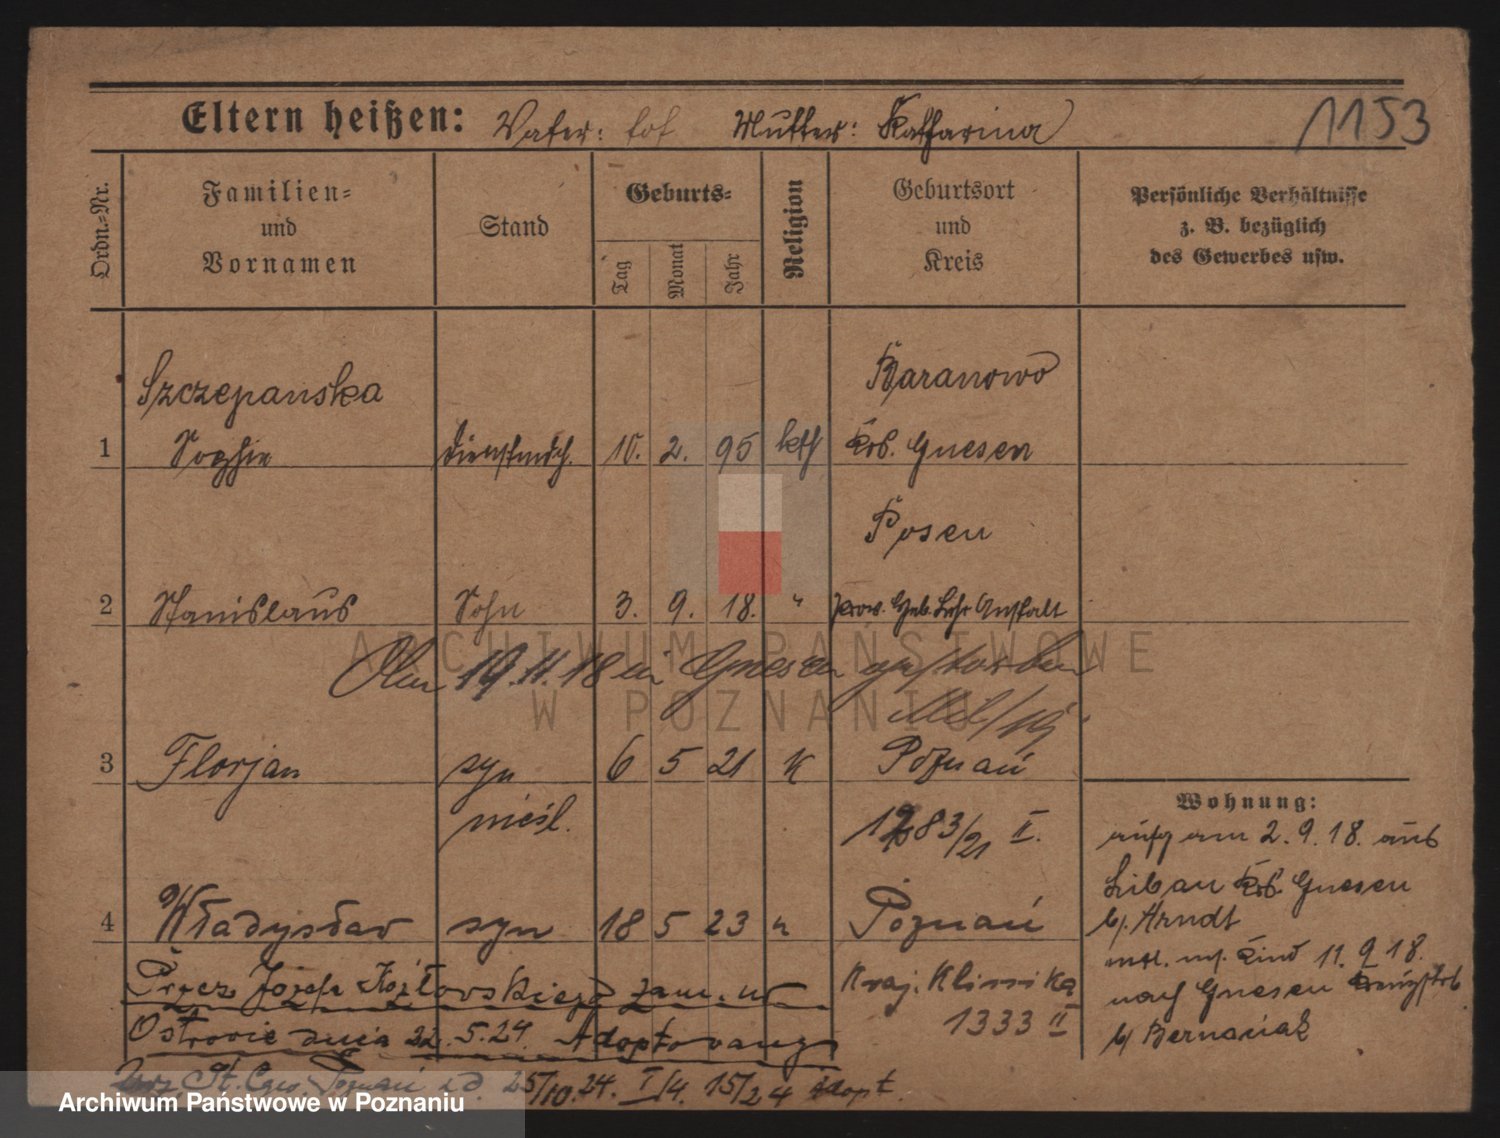 Eltern heißen: Vater: tot Mutter: Katharina
1153
Ordn.-Nr.
Familien- und Vornamen
Stand
Geburts-
Tag Monat Jahr
Religion
Geburtsort und Kreis
Persönliche Verhältnisse z. B. bezüglich des Gewerbes usw.
Szczepanska Baranowo
1 Sophie Dienstmdch. 10. 2. 95 kth Krs. Gnesen
Posen
2 Stanislaus Sohn 3. 9. 18. " Prov. Heb. Lehr Anstalt
Am 19.11.18 in Gnesen gestorben
3 Florjan syn 6 5 21 K Poznań
nieśl. 1283/21 II.
4 Władysław syn 18 5 23 " Poznań
Kraj. Klinika
1333 II
Przez Józefa Kozłowskiego zam. w
Ostrowie dnia 22.5.24. Adoptowany
St. Cyw. Poznań z d. 25/10.24. I/4. 15/24 Adopt.
Wohnung:
aufg am 2.9.18. aus
Libau Krs. Gnesen
b/. Arndt
Kind 11.9.18.
nach Gnesen
b/ Bernaciak
ARCHIWUM PAŃSTWOWE
W POZNANIU
Archiwum Państwowe w Poznaniu